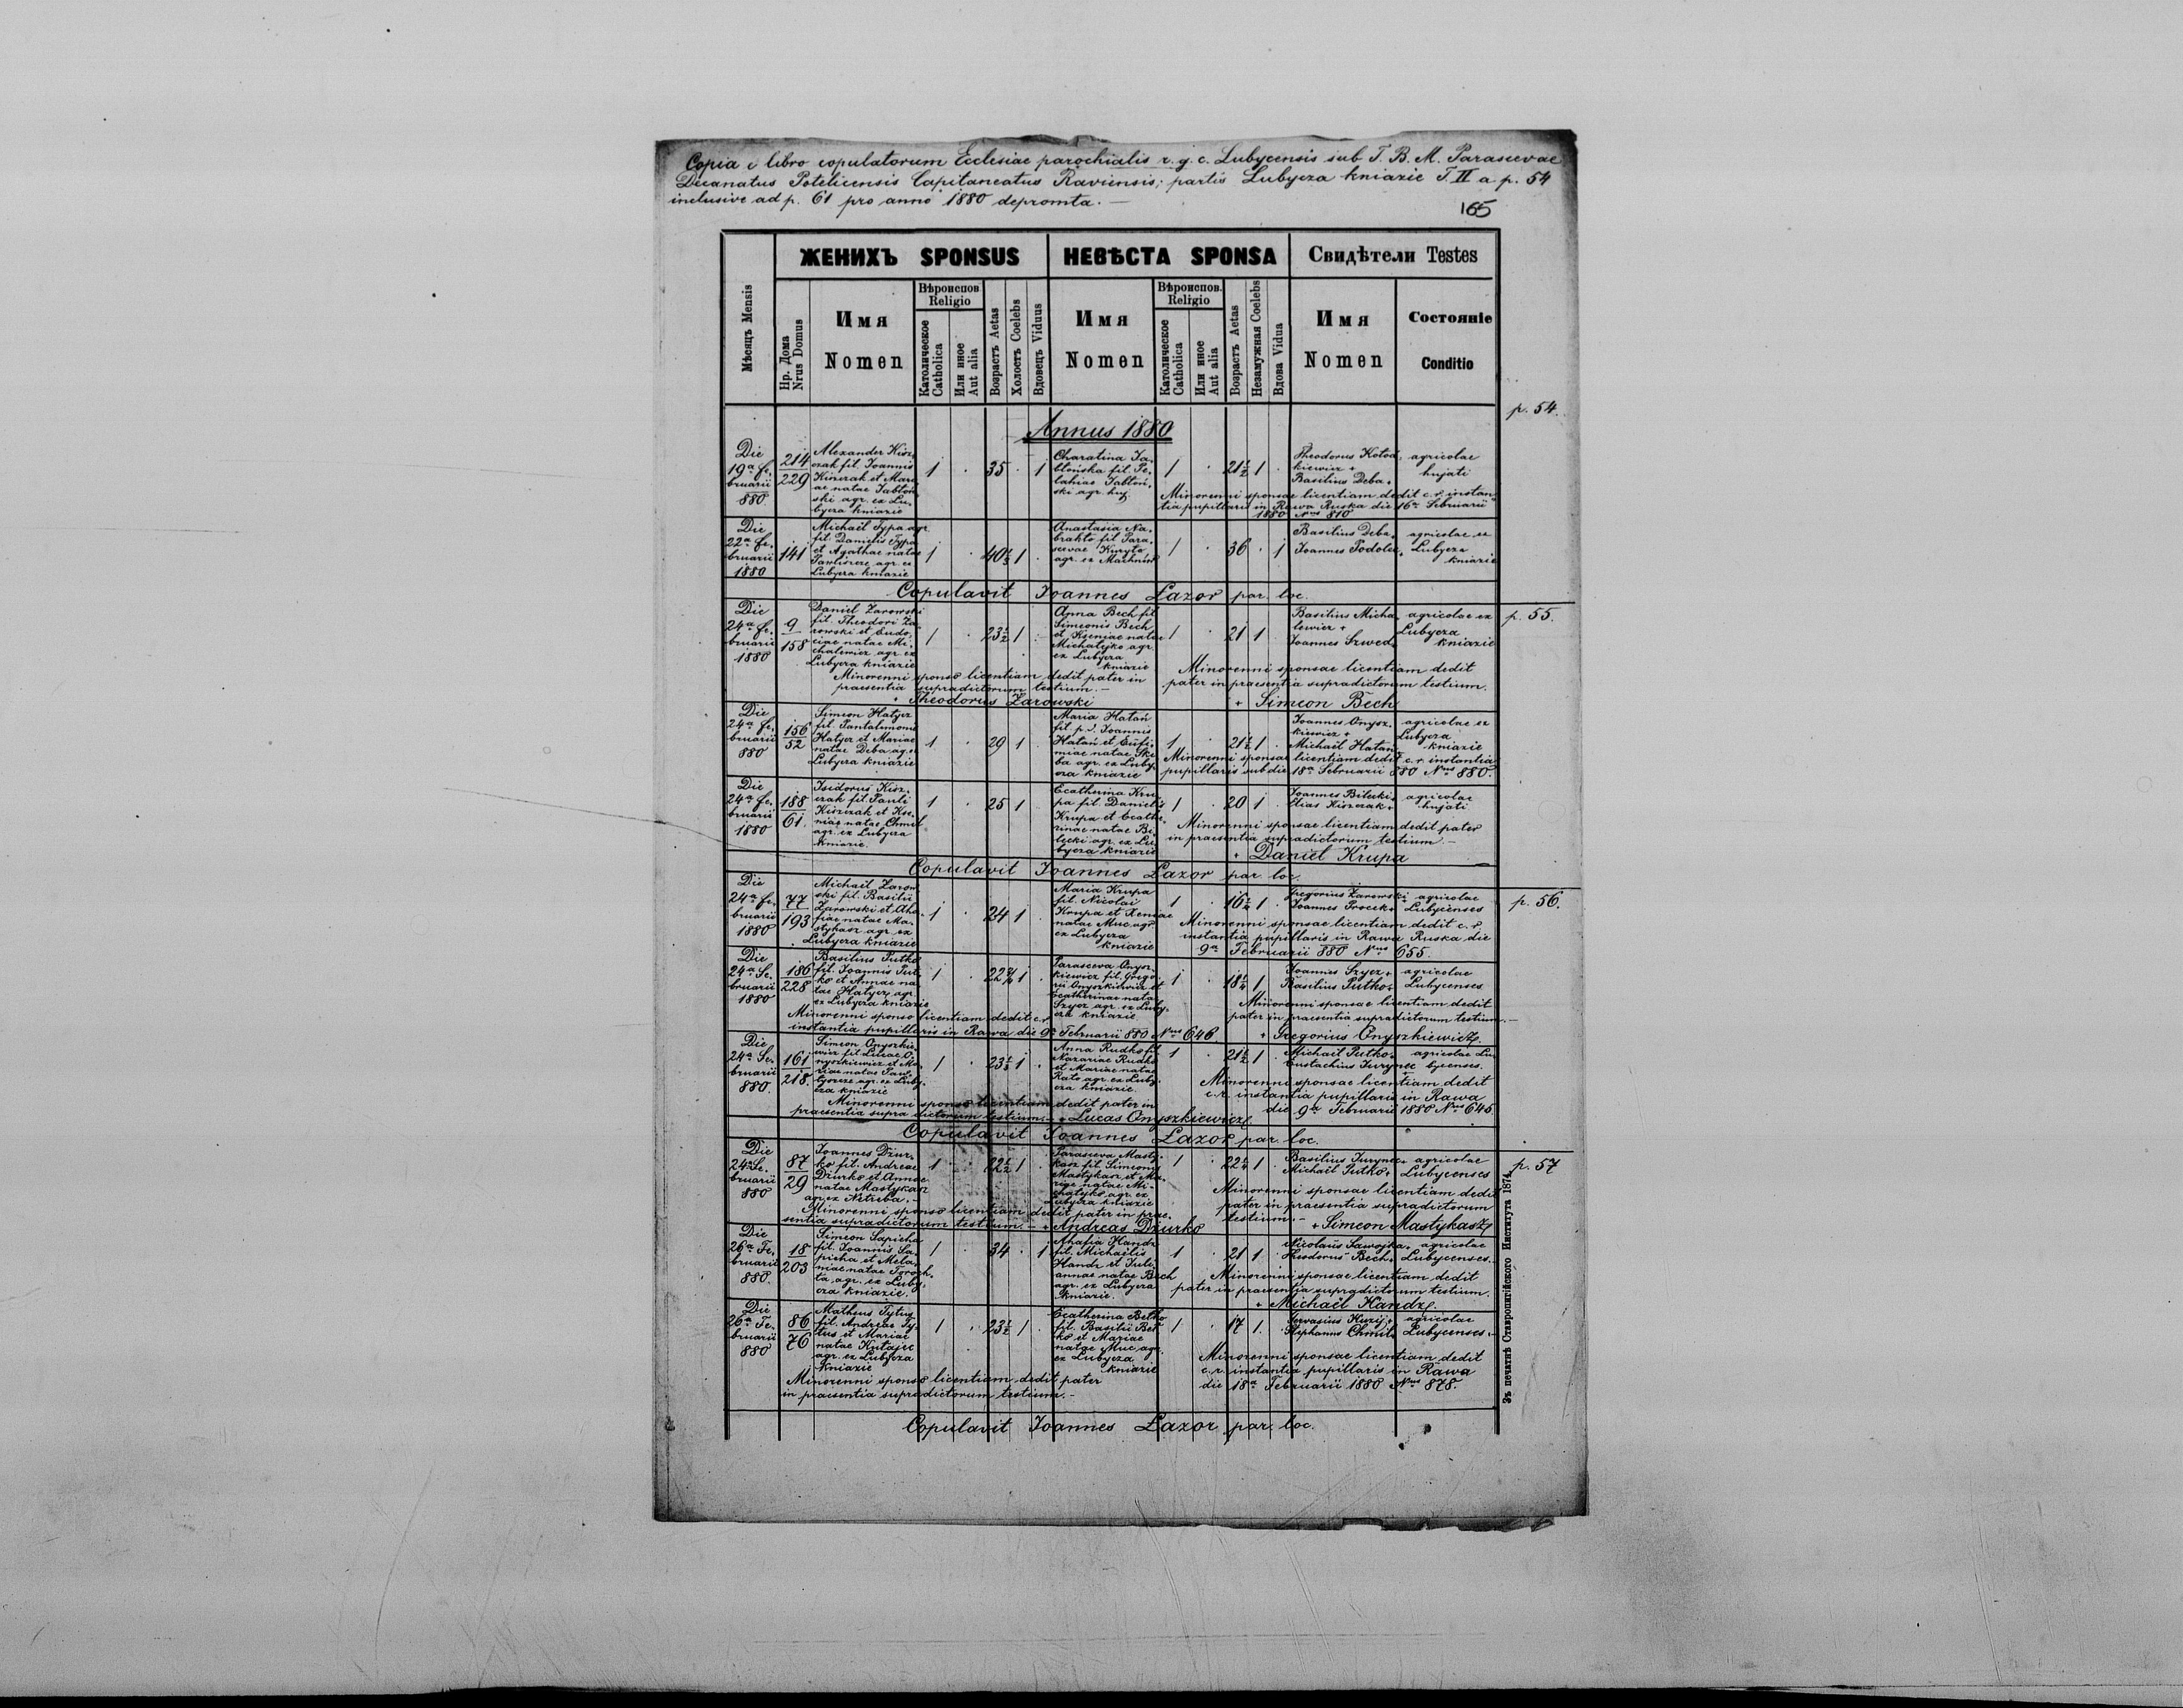 Copia e libro copulatorum Ecclesiae parochialis r. g. c. Lubycensis sub T. B. M. Parascevae
Decanatus Potelicensis Capitaneatus Raviensis; partis Lubycza kniazie T. II a p. 54
inclusive ad p. 61 pro anno 1880 depromta. —
165
ЖЕНИХЪ SPONSUS
НЕВѢСТА SPONSA
Свидѣтели Testes
Мѣсяцъ Mensis
Нр. Дома
Nrus Domus
Имя
Nomen
Вѣроиспов.
Religio
Католическое
Catholica
Или иное
Aut alia
Возрастъ Aetas
Холостъ Coelebs
Вдовецъ Viduus
Имя
Nomen
Вѣроиспов.
Religio
Католическое
Catholica
Или иное
Aut alia
Возрастъ Aetas
Незамужная Coelebs
Вдова Vidua
Имя
Nomen
Состояніе
Conditio
p. 54.
Annus 1880
Die
19ª Fe-
bruarii
880.
214
229
Alexander Kisz-
czak fil. Joannis
Kiszczak et Mari-
ae natae Jabłoń-
ski agr. ex Lu-
bycza kniazie
1 35 1
Charatina Ja-
błońska fil. Pe-
lahiae Jabłoń-
ski agr. huj.
1 21½ 1
Theodorus Kotod-
kiewicz +
Basilius Deba +
agricolae
hujati
Minorenni sponsae licentiam dedit c. r. instan-
tia pupillaris in Rawa Ruska die 16ª Februarii
1880 Nrus 810
Die
22ª Fe-
bruarii
1880
141
Michaël Typa agr.
fil. Danielis Typa
et Agathae natae
agr. ex
Lubycza kniazie
1 40½ 1
Anastasia Na-
brakto fil. Para-
scevae Kuryto
agr. ex Machnów
1 36 1
Basilius Deba +
Joannes Podolec +
agricolae ex
Lubycza
kniazie
Copulavit Joannes Łazor par. loc.
p. 55.
Die
24ª Fe-
bruarii
1880
9
158
Daniel Żarowski
fil. Theodori Ża-
rowski et Eudo-
ciae natae Mi-
chalewicz agr. ex
Lubycza kniazie
1 23½ 1
Anna Bech fil.
Simeonis Bech
et Kseniae natae
Michalyko agr.
ex Lubycza
kniazie
1 21 1
Basilius Micha-
lewicz +
Joannes Szwed +
agricolae ex
Lubycza
kniazie
Minorenni sponso licentiam dedit pater in
praesentia supradictorum testium. —
+ Theodorus Żarowski
Minorenni sponsae licentiam dedit
pater in praesentia supradictorum testium.
+ Simeon Bech
Die
24ª Fe-
bruarii
880
156
52
Simeon Hatycz
fil. Pantalemonis
Hatycz et Mariae
natae Deba agr.
Lubycza kniazie
1 29 1
Maria Hatań
fil. p. d. Joannis
Hatań et Eufi-
miae natae Ski-
ba agr. ex Luby-
cza kniazie
1 21½ 1
Joannes Onysz-
kiewicz +
Michaël Hatań +
agricolae ex
Lubycza
kniazie
Minorenni sponsae licentiam dedit c. r. instantia
pupillaris sub die 18ª Februarii 880 Nrus 880.
Die
24ª Fe-
bruarii
1880
188
61.
Isidorus Kisz-
czak fil. Pauli
Kiszczak et Kse-
niae natae Chmil
agr. ex Lubycza
kniazie.
1 25 1
Ecatherina Kru-
pa fil. Danielis
Krupa et Ecathe-
rinae natae Bi-
lecki agr. ex Lu-
bycza kniazie
1 20 1
Joannes Bilecki +
Elias Kiszczak +
agricolae
hujati
Minorenni sponsae licentiam dedit pater
in praesentia supradictorum testium. —
+ Daniel Krupa
Copulavit Joannes Łazor par. loc.
p. 56.
Die
24ª Fe-
bruarii
1880
77
193
Michaël Żarow-
ski fil. Basilii
Żarowski et Aha-
fiae natae Ma-
stykasz agr. ex
Lubycza kniazie
1 24 1
Maria Krupa
fil. Nicolai
Krupa et Xeniae
natae Muc agr.
ex Lubycza
kniazie
1 16½ 1
Gregorius Żarowski +
Joannes Procek +
agricolae
Lubycenses
Minorenni sponsae licentiam dedit c. r.
instantia pupillaris in Rawa Ruska die
9ª Februarii 880 Nrus 655.
Die
24ª Fe-
bruarii
1880
186
228
Basilius Putko
fil. Joannis Put-
ko et Annae na-
tae Hatycz agr.
ex Lubycza kniazie
1 22 1
Parasceva Onysz-
kiewicz fil. Grego-
rii Onyszkiewicz et
Ecatherinae natae
Szycz agr. ex Luby-
cza kniazie.
1 18¼ 1
Joannes Szycz +
Basilius Putko +
agricolae
Lubycenses
Minorenni sponso licentiam dedit c. r.
instantia pupillaris in Rawa die 9ª Februarii 880 Nrus 646
Minorenni sponsae licentiam dedit
pater in praesentia supradictorum testium. —
+ Gregorius Onyszkiewicz.
Die
24ª Fe-
bruarii
880.
161
218.
Simeon Onyszkie-
wicz fil. Lucae O-
nyszkiewicz et Ma-
riae natae Paw-
agr. ex Luby-
cza kniazie
1 23½ 1
Anna Rudko fil.
Nazariae Rudko
et Mariae natae
Rato agr. ex Luby-
cza kniazie.
1 21½ 1
Michaël Putko +
Eustachius Jurynec +
agricolae Lu-
bycenses.
Minorenni sponso licentiam dedit pater in
praesentia supra dictorum testium. — + Lucas Onyszkiewicz.
Minorenni sponsae licentiam dedit
c. r. instantia pupillaris in Rawa
die 9ª Februarii 1880 Nrus 645.
Copulavit Joannes Łazor par. loc.
p. 57
Die
24ª Fe-
bruarii
880
87
29
Joannes Dżur-
ko fil. Andreae
Dżurko et Annae
natae Mastykasz
agr. ex Netreba. —
1 22½ 1
Parasceva Masty-
kasz fil. Simeonis
Mastykasz et Ma-
riae natae Mi-
chatyko agr. ex
Lubycza kniazie
1 22¼ 1
Basilius Jurynec +
Michaël Putko +
agricolae
Lubycenses
Minorenni sponso licentiam dedit pater in prae-
sentia supradictorum testium. — + Andreas Dżurko
Minorenni sponsae licentiam dedit
pater in praesentia supradictorum
testium. —
+ Simeon Mastykasz.
Die
26ª Fe-
bruarii
880.
18
203
Simeon Sapicha
fil. Joannis Sa-
picha et Mela-
niae natae Toroch-
ta agr. ex Luby-
cza kniazie.
1 34 1
Ahafia Handz
fil. Michaëlis
Handz et Juli-
annae natae Bech
agr. ex Lubycza
kniazie.
1 21 1
Nicolaus Sawojka +
Theodorus Bech +
agricolae
Lubycenses. —
Minorenni sponsae licentiam dedit
pater in praesentia supradictorum testium.
+ Michaël Handz.
Die
26ª Fe-
bruarii
880
86
76
Matheus Tytus
fil. Andreae Ty-
tus et Mariae
natae Kutajec
agr. ex Lubycza
kniazie
1 23½ 1
Ecatherina Betko
fil. Basilii Bet-
ko et Mariae
natae Muc agr.
ex Lubycza
kniazie
1 17 1
Gervasius Kuzij +
Stephanus Chmil +
agricolae
Lubycenses. —
Minorenni sponso licentiam dedit pater
in praesentia supradictorum testium. —
Minorenni sponsae licentiam dedit
c. r. instantia pupillaris in Rawa
die 18ª Februarii 1880 Nrus 878.
Copulavit Joannes Łazor par. loc.
Зъ печатнѣ Ставропигійского Института 1874.